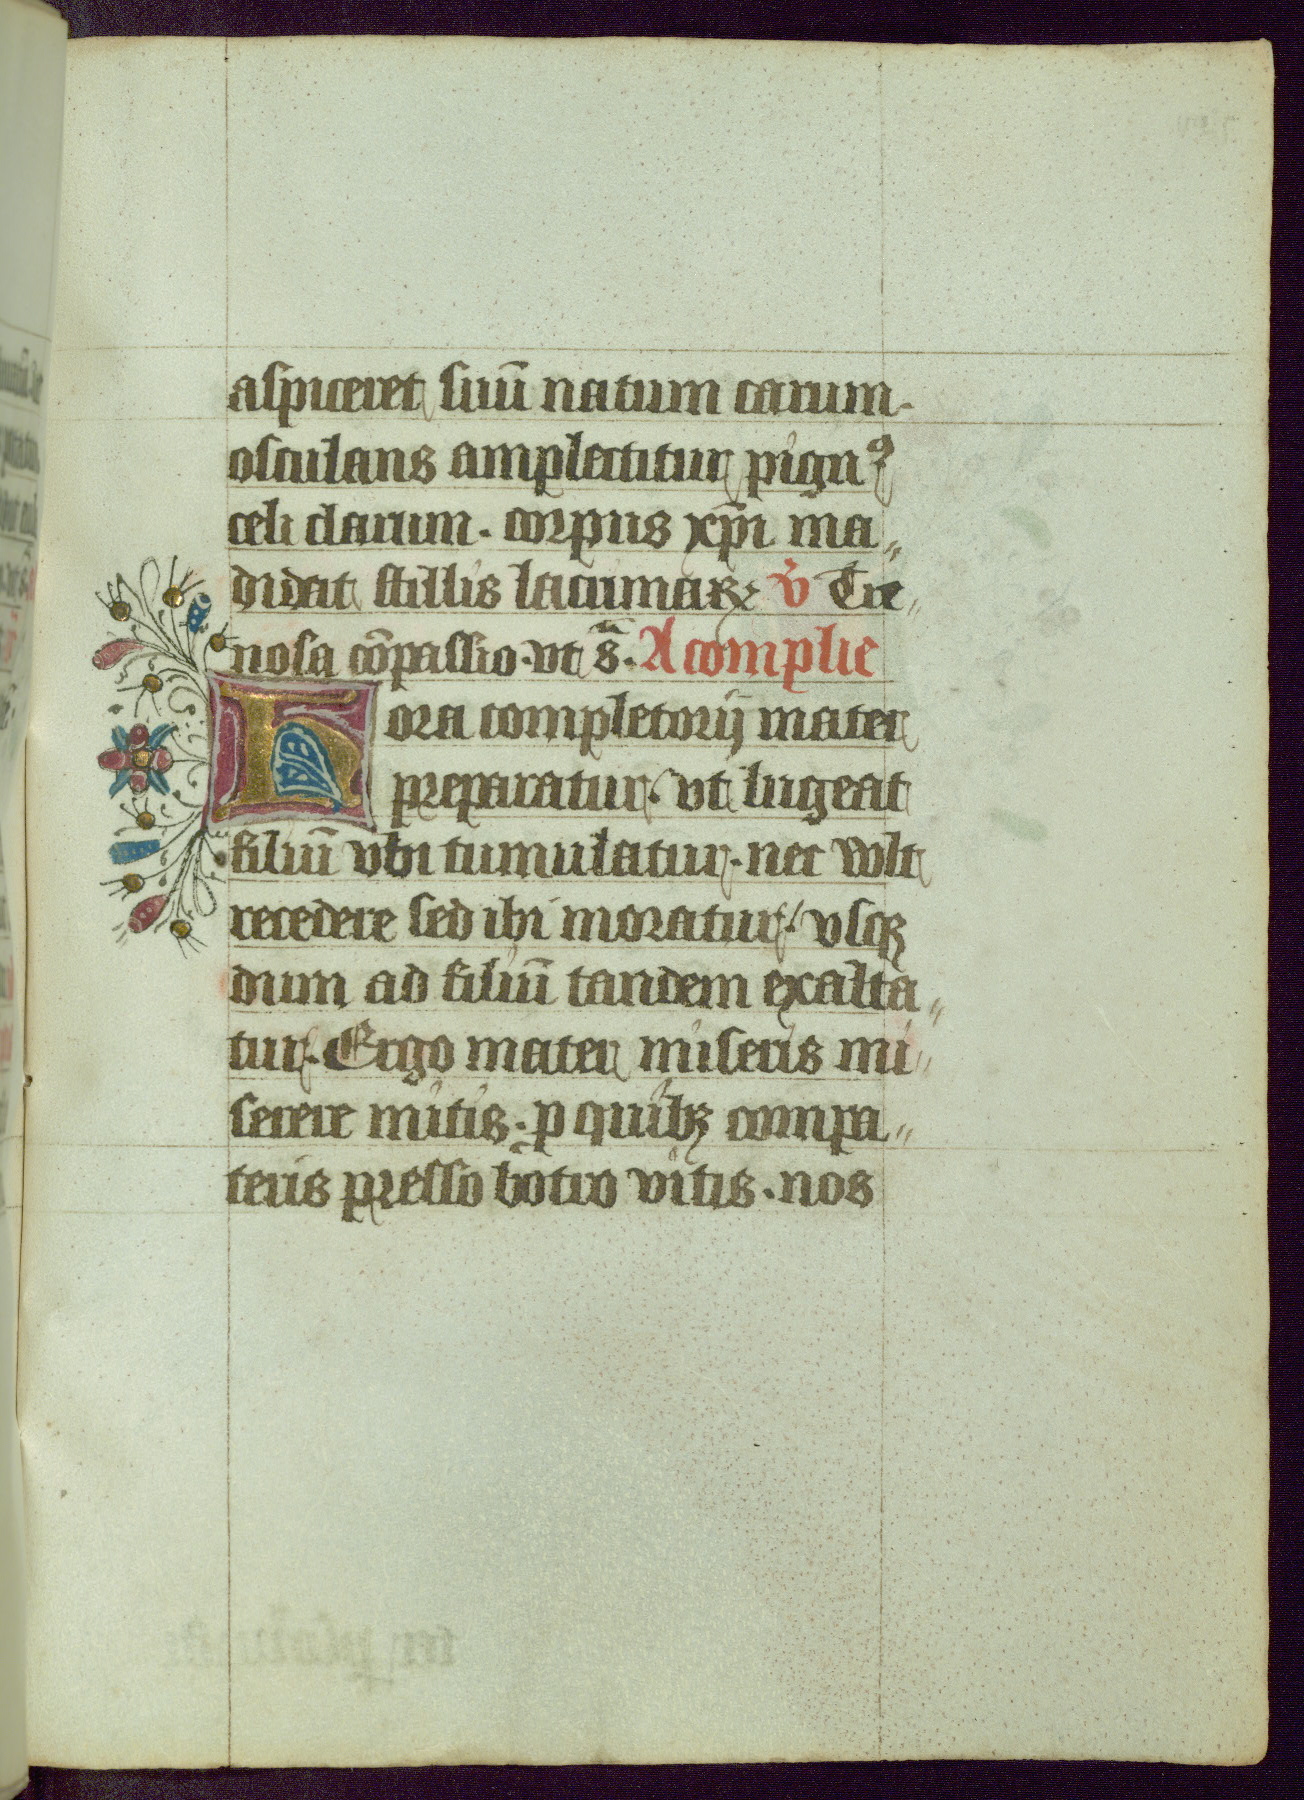 aspiceret suū natum carum·
osculans amplectitur pignꝰ
celi clarum · corpus xp̄i ma„
didat stillis lacrimaꝝ v̄ Cre„
nosa cōpassio · vt s̄ · A complie
Hora completorij mater
preparatur · vt lugeat
filiū vbi tumulatur · nec vult
recedere sed ibi moratur / vsqꝫ
dum ad filiū tandem exalta„
tur · Ergo mater miseris mi„
serere mitis · p quibꝫ compa„
teris presso botro vitis · nos